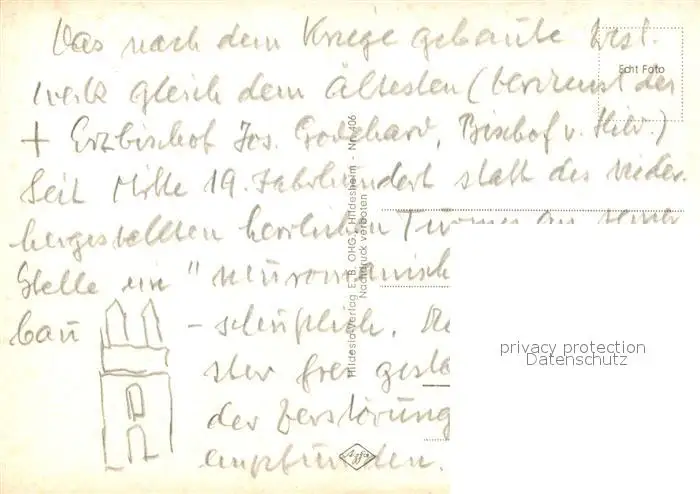 Das nach dem Kriege gebaute West-
werk gleich dem ältesten (Verdienst des
+ Erzbischof Jos. Godehard, Bischof v. Hild.)
Seit Mitte 19. Jahrhundert statt des wieder-
hergestellten herrlichen Turmes an seiner
Stelle ein "neuromanisch
bau - scheußlich.
ster frei
der Zerstörung
empfunden.
Echt Foto
Hildesia-Verlag E. B. OHG., Hildesheim - Nr. 406
Nachdruck verboten
Agfa
privacy protection
Datenschutz